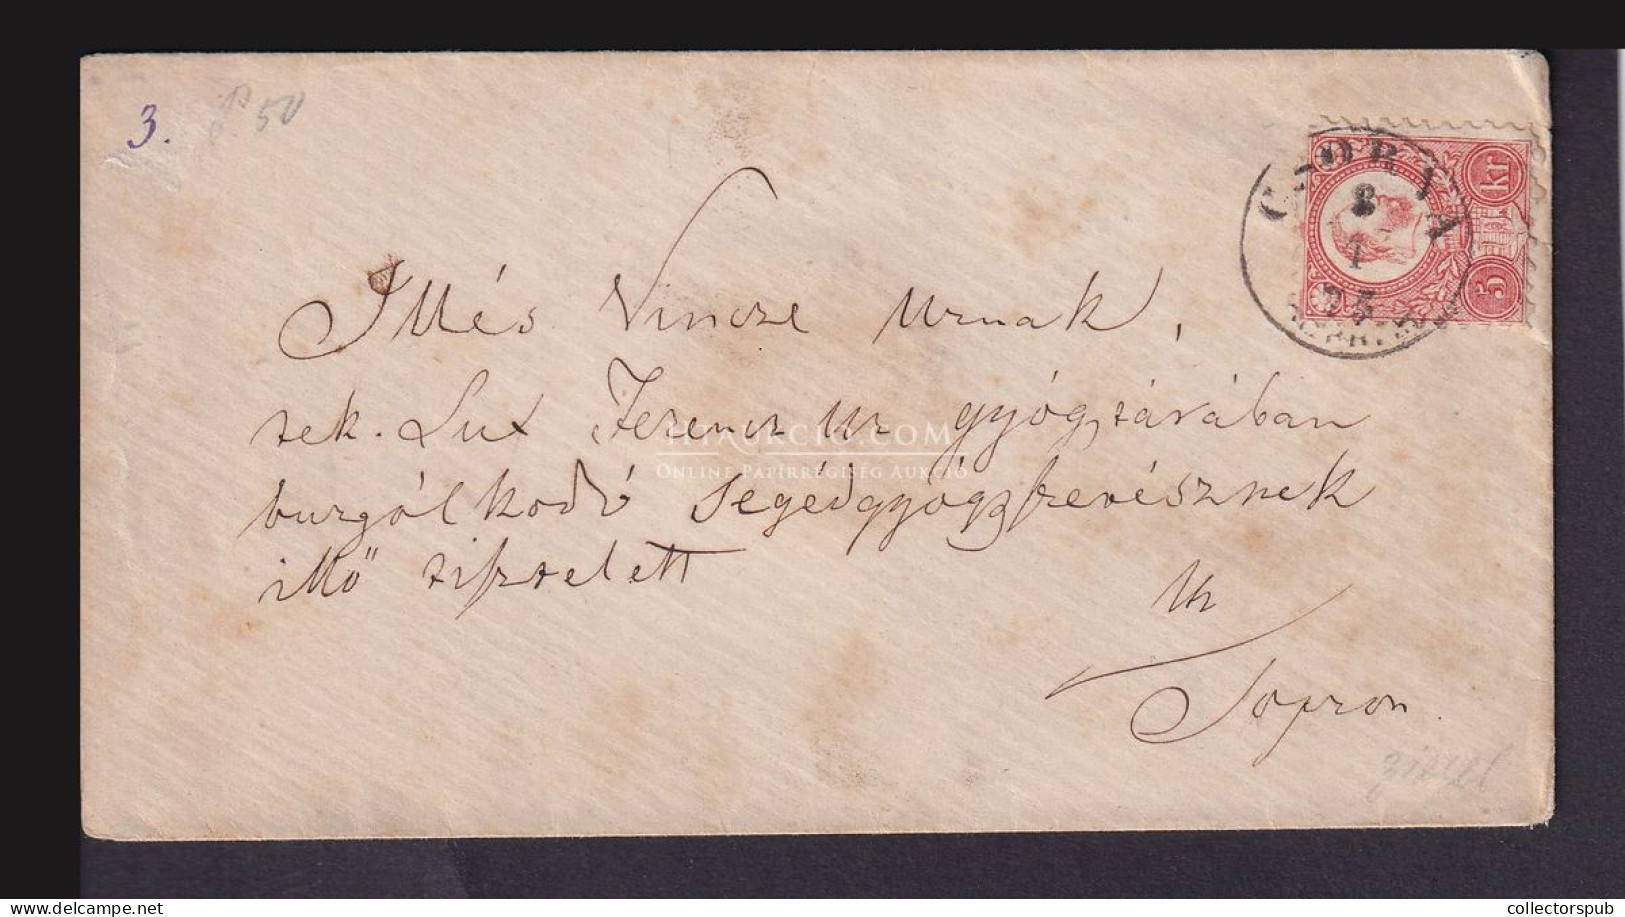 3. 50
CSORNA
5 kr
Illés Vincze Urnak,
tek. Lux Ferencz Ur gyógytárában
burgólkodó segédgyógyszerésznek
illő tisztelett
Ur
Sopron.
HTAUKCIO.COM
ONLINE PAPÍRRÉGISÉG AUKCIÓ
collectorspub